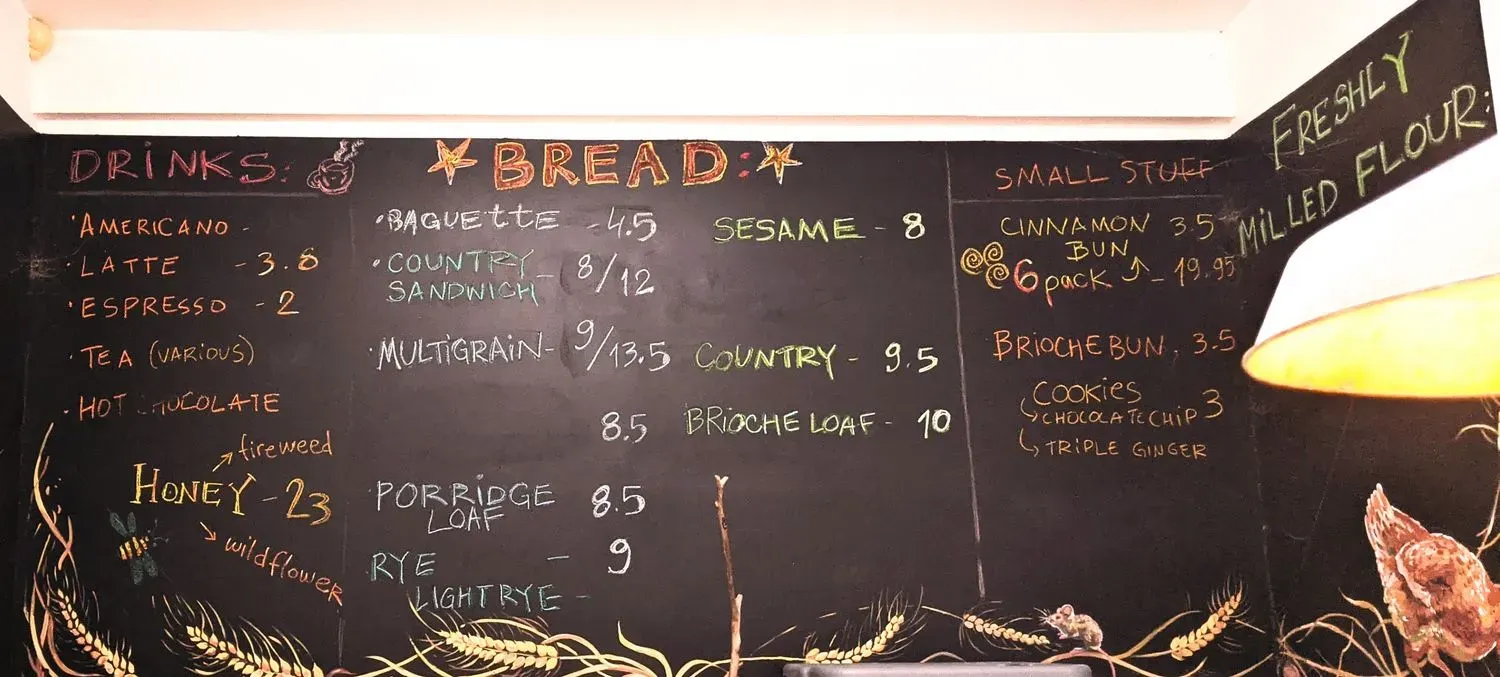 DRINKS:
AMERICANO -
LATTE - 3.8
ESPRESSO - 2
TEA (VARIOUS)
HOT CHOCOLATE
fireweed
HONEY - 23
wildflower
BREAD:
BAGUETTE - 4.5
COUNTRY SANDWICH - 8/12
MULTIGRAIN - 9/13.5
8.5
PORRIDGE LOAF 8.5
RYE - 9
LIGHT RYE -
SESAME - 8
COUNTRY - 9.5
BRIOCHE LOAF - 10
SMALL STUFF
CINNAMON 3.5
BUN
6 pack - 19.95
BRIOCHE BUN, 3.5
COOKIES
CHOCOLATE CHIP 3
TRIPLE GINGER
FRESHLY
MILLED FLOUR: